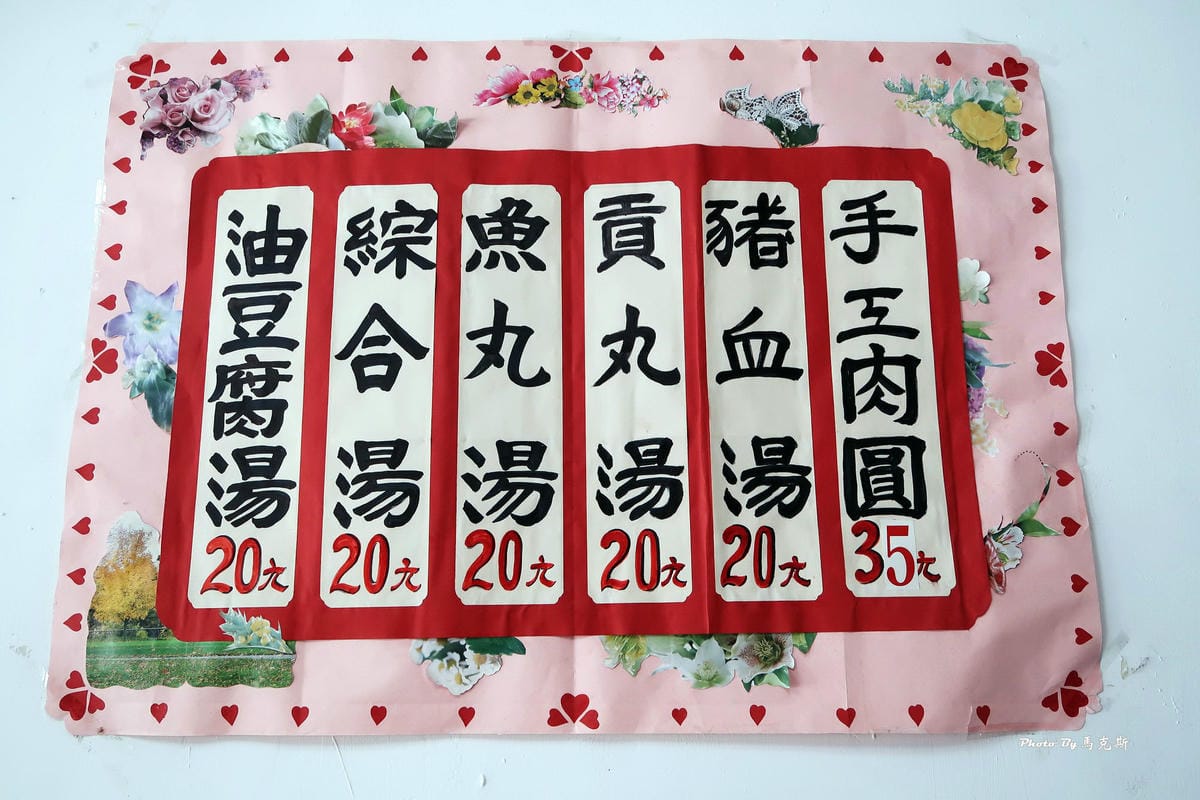 手工肉圓35元
豬血湯20元
貢丸湯20元
魚丸湯20元
綜合湯20元
油豆腐湯20元
Photo By 馬克斯